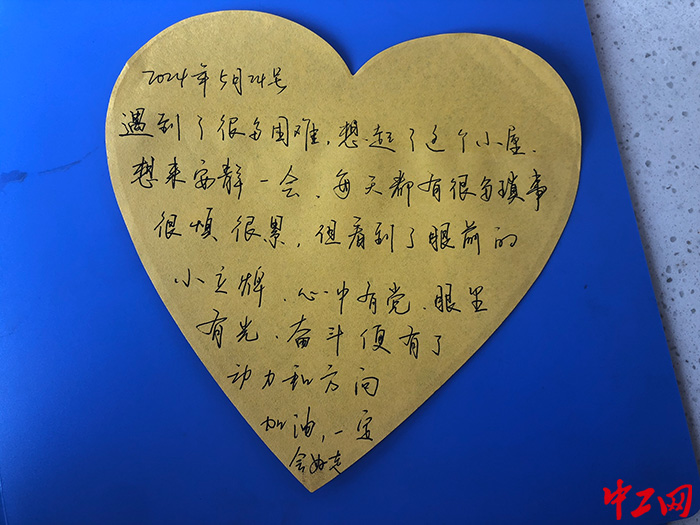 2024年5月24号
遇到了很多困难,想起了这个小屋.
想来安静一会、每天都有很多琐事
很烦很累,但看到了眼前的
小立牌、心中有党、眼里
有光、奋斗便有了
动力和方向
加油,一定
会好
中工网